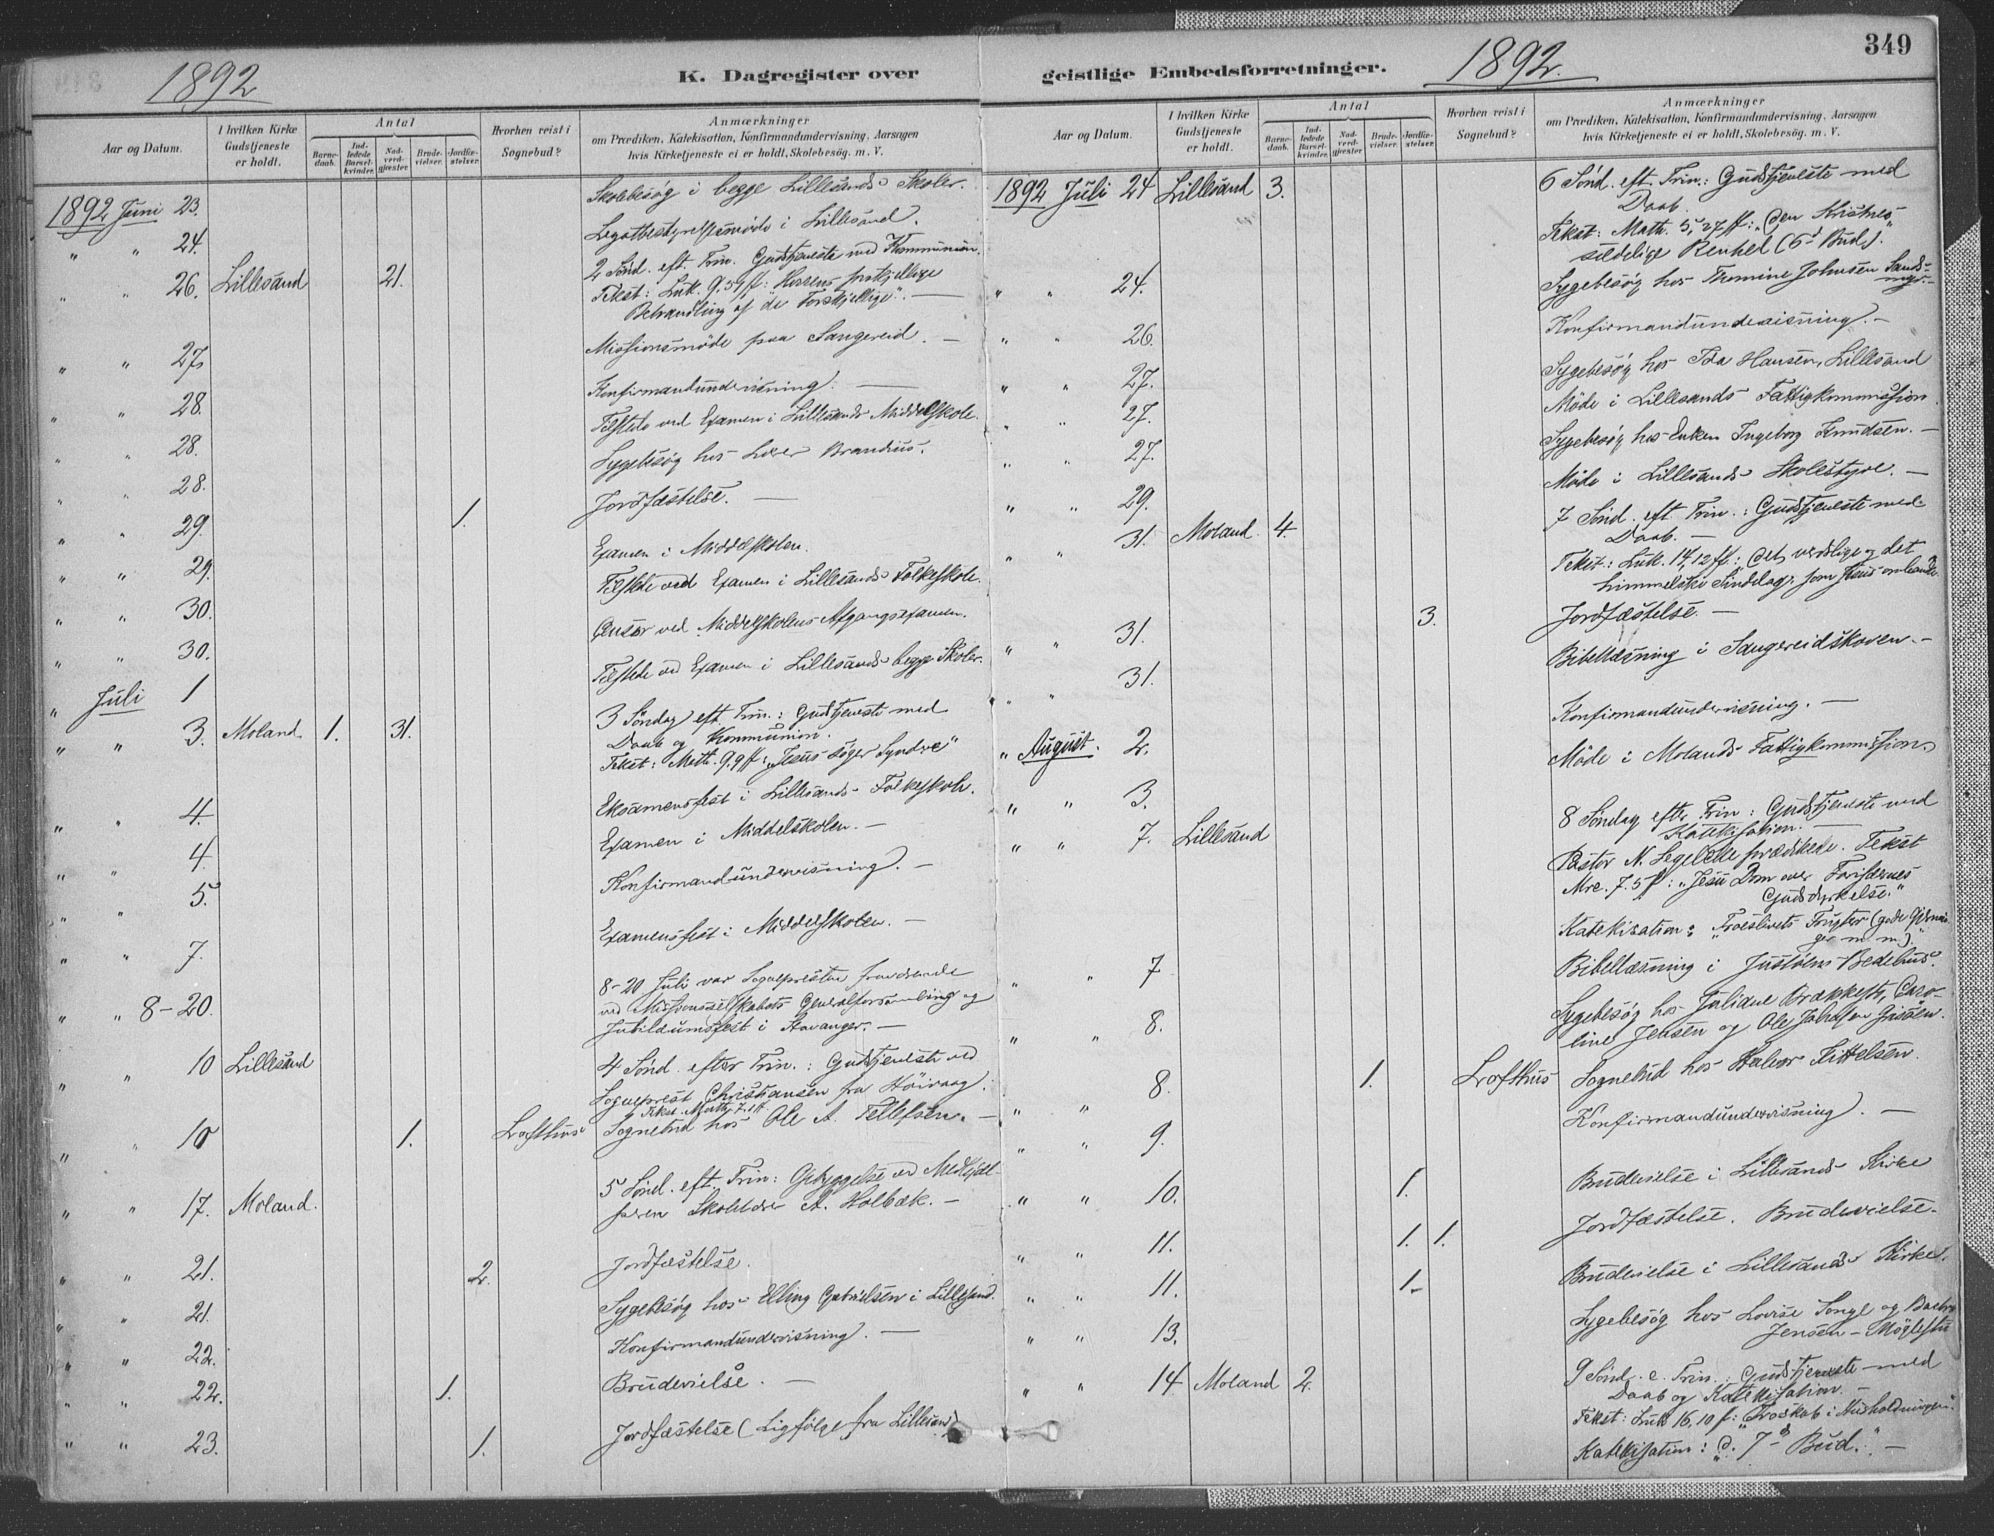 1892
K. Dagregister over
Aar og Datum.
I hvilken Kirke Gudstjeneste er holdt.
Antal
Barnedaab.
Indledede Barselkvinder.
Nadverdgjæster
Brudevielser.
Jordfæstelser.
Hvorhen reist i Sognebud?
Anmærkninger
om Prædiken, Katekisation, Konfirmandundervisning, Aarsagen
hvis Kirketjeneste ei er holdt, Skolebesøg. m. V.
1892 Juni 23. Skolebesøg i begge Lillesands Skoler.
" " 24. Legatbestyrelsesmøde i Lillesand.
" " 26. Lillesand 21. 2 Sønd. eft. Trin. Gudstjeneste med Kommunion.
Tekst: Luk. 9, 59 ff: Herrens forskjellige
Behandling af de Forskjellige". —
" " 27. Missionsmøde paa Sangereid. —
" " 28. Konfirmandundervisning. —
" " 28. Tilstede ved Examen i Lillesands Middelskole.
" " 28. Sygebesøg hos Brandius.
" " 29. 1. Jordfæstelse. —
" " 29. Examen i Middelskolen.
" " 30. Tilstede ved Examen i Lillesands Folkeskole.
" " 30. Censor ved Middelskolens Afgangsexamen.
" Juli 1 Tilstede ved Examen i Lillesands begge Skoler.
" " 3. Moland. 1. 31. 3 Søndag eft. Trin.: Gudstjeneste med
Daab og Kommunion.
Tekst: Math. 9, 9 ff: "Jesus søger Syndere"
" " 4. Eksamensfest i Lillesands Folkeskole.
" " 4. Examen i Middelskolen. —
" " 5. Konfirmandundervisning. —
" " 7. Examensfest i Middelskolen. —
" " 8–20. 8–20 Juli var Sognepresten fraværende
ved Missionsselskabets Generalforsamling og
Jubilæumsfest i Stavanger. —
" " 10 Lillesand 4 Sønd. efter Trin.: Gudstjeneste ved
Sogneprest Christiansen fra Høivaag.
Tekst. Math. 7, 1 ff
" " 10 1. Lofthus Sognebud hos Ole A. Tellefsen. —
" " 17. Moland. 5 Sønd. eft. Trin: Opbyggelse ved Medhjælperen
Skolelærer A. Holbæk. —
" " 21. 2. Jordfæstelse.
" " 21. Sygebesøg hos Elling Gabrielsen i Lillesand.
" " 22. Konfirmandundervisning. —
" " 22. 1. Brudevielse. —
" " 23. 1. Jordfæstelse (Ligfølge fra Lillesand)
349
geistlige Embedsforretninger.
1892.
Aar og Datum.
I hvilken Kirke Gudstjeneste er holdt.
Antal
Barnedaab.
Indledede Barselkvinder.
Nadverdgjæster
Brudevielser.
Jordfæstelser.
Hvorhen reist i Sognebud?
Anmærkninger
om Prædiken, Katekisation, Konfirmandundervisning, Aarsagen
hvis Kirketjeneste ei er holdt, Skolebesøg. m. V.
1892 Juli 24 Lillesand 3. 6 Sønd. eft. Trin.: Gudstjeneste med
Daab.
Tekst: Math. 5, 27 ff: "Den Kristnes
sædelige Renhed (6te Bud)."
" " 24. Sygebesøg hos Tomine Johnsen
" " 26. Konfirmandundervisning. —
" " 27. Sygebesøg hos Ida Hansen, Lillesand
" " 27. Møde i Lillesands Fattigkommission.
" " 27. Sygebesøg hos Enken Ingeborg Knudsen. —
" " 29. Møde i Lillesands Skolestyre. —
" " 31. Moland. 4. 7 Sønd. eft. Trin.: Gudstjeneste med
Daab. —
Tekst: Luk. 14, 12 ff: Det verdslige og det
himmelske Sindelag,
" " 31. 3. Jordfæstelse. —
" " 31. Bibellæsning i Sangereidskoven. —
" August. 2. Konfirmandundervisning. —
" " 3. Møde i Molands Fattigkommission.
" " 7. Lillesand 8 Søndag efter Trin: Gudstjeneste med
Katekisation. —
Pastor N. prædikede. Tekst
Mrc. 7, 5 ff: "Jesu Dom over Farisæernes
Gudsdyrkelse."
Katekisation: "Troeslivets Frugter (gode Gjerninger
m. m.)."
" " 7 Bibellæsning i Justøens Bedehus.
" " 8. Sygebesøg hos Juliane Brækkestø, Caroline
Jensen og Ole Johnsen Justøen.
" " 8. 1. Lofthus Sognebud hos Halvor Kittelsen.
" " 9. Konfirmandundervisning. —
" " 10. 1. Brudevielse i Lillesands Kirke
" " 11. 1. 1. Jordfæstelse. Brudevielse.
" " 11. 1. Brudevielse i Lillesands Kirke.
" " 13. Sygebesøg hos Lovise Songe og
Jensen – Møglestu
" " 14 Moland 2. 9 Sønd. e. Trin.: Gudstjeneste med
Daab og Katekisation. —
Tekst: Luk 16, 10 ff: "Troskab i Husholdningen."
Katekisation: "D. 7de Bud." —